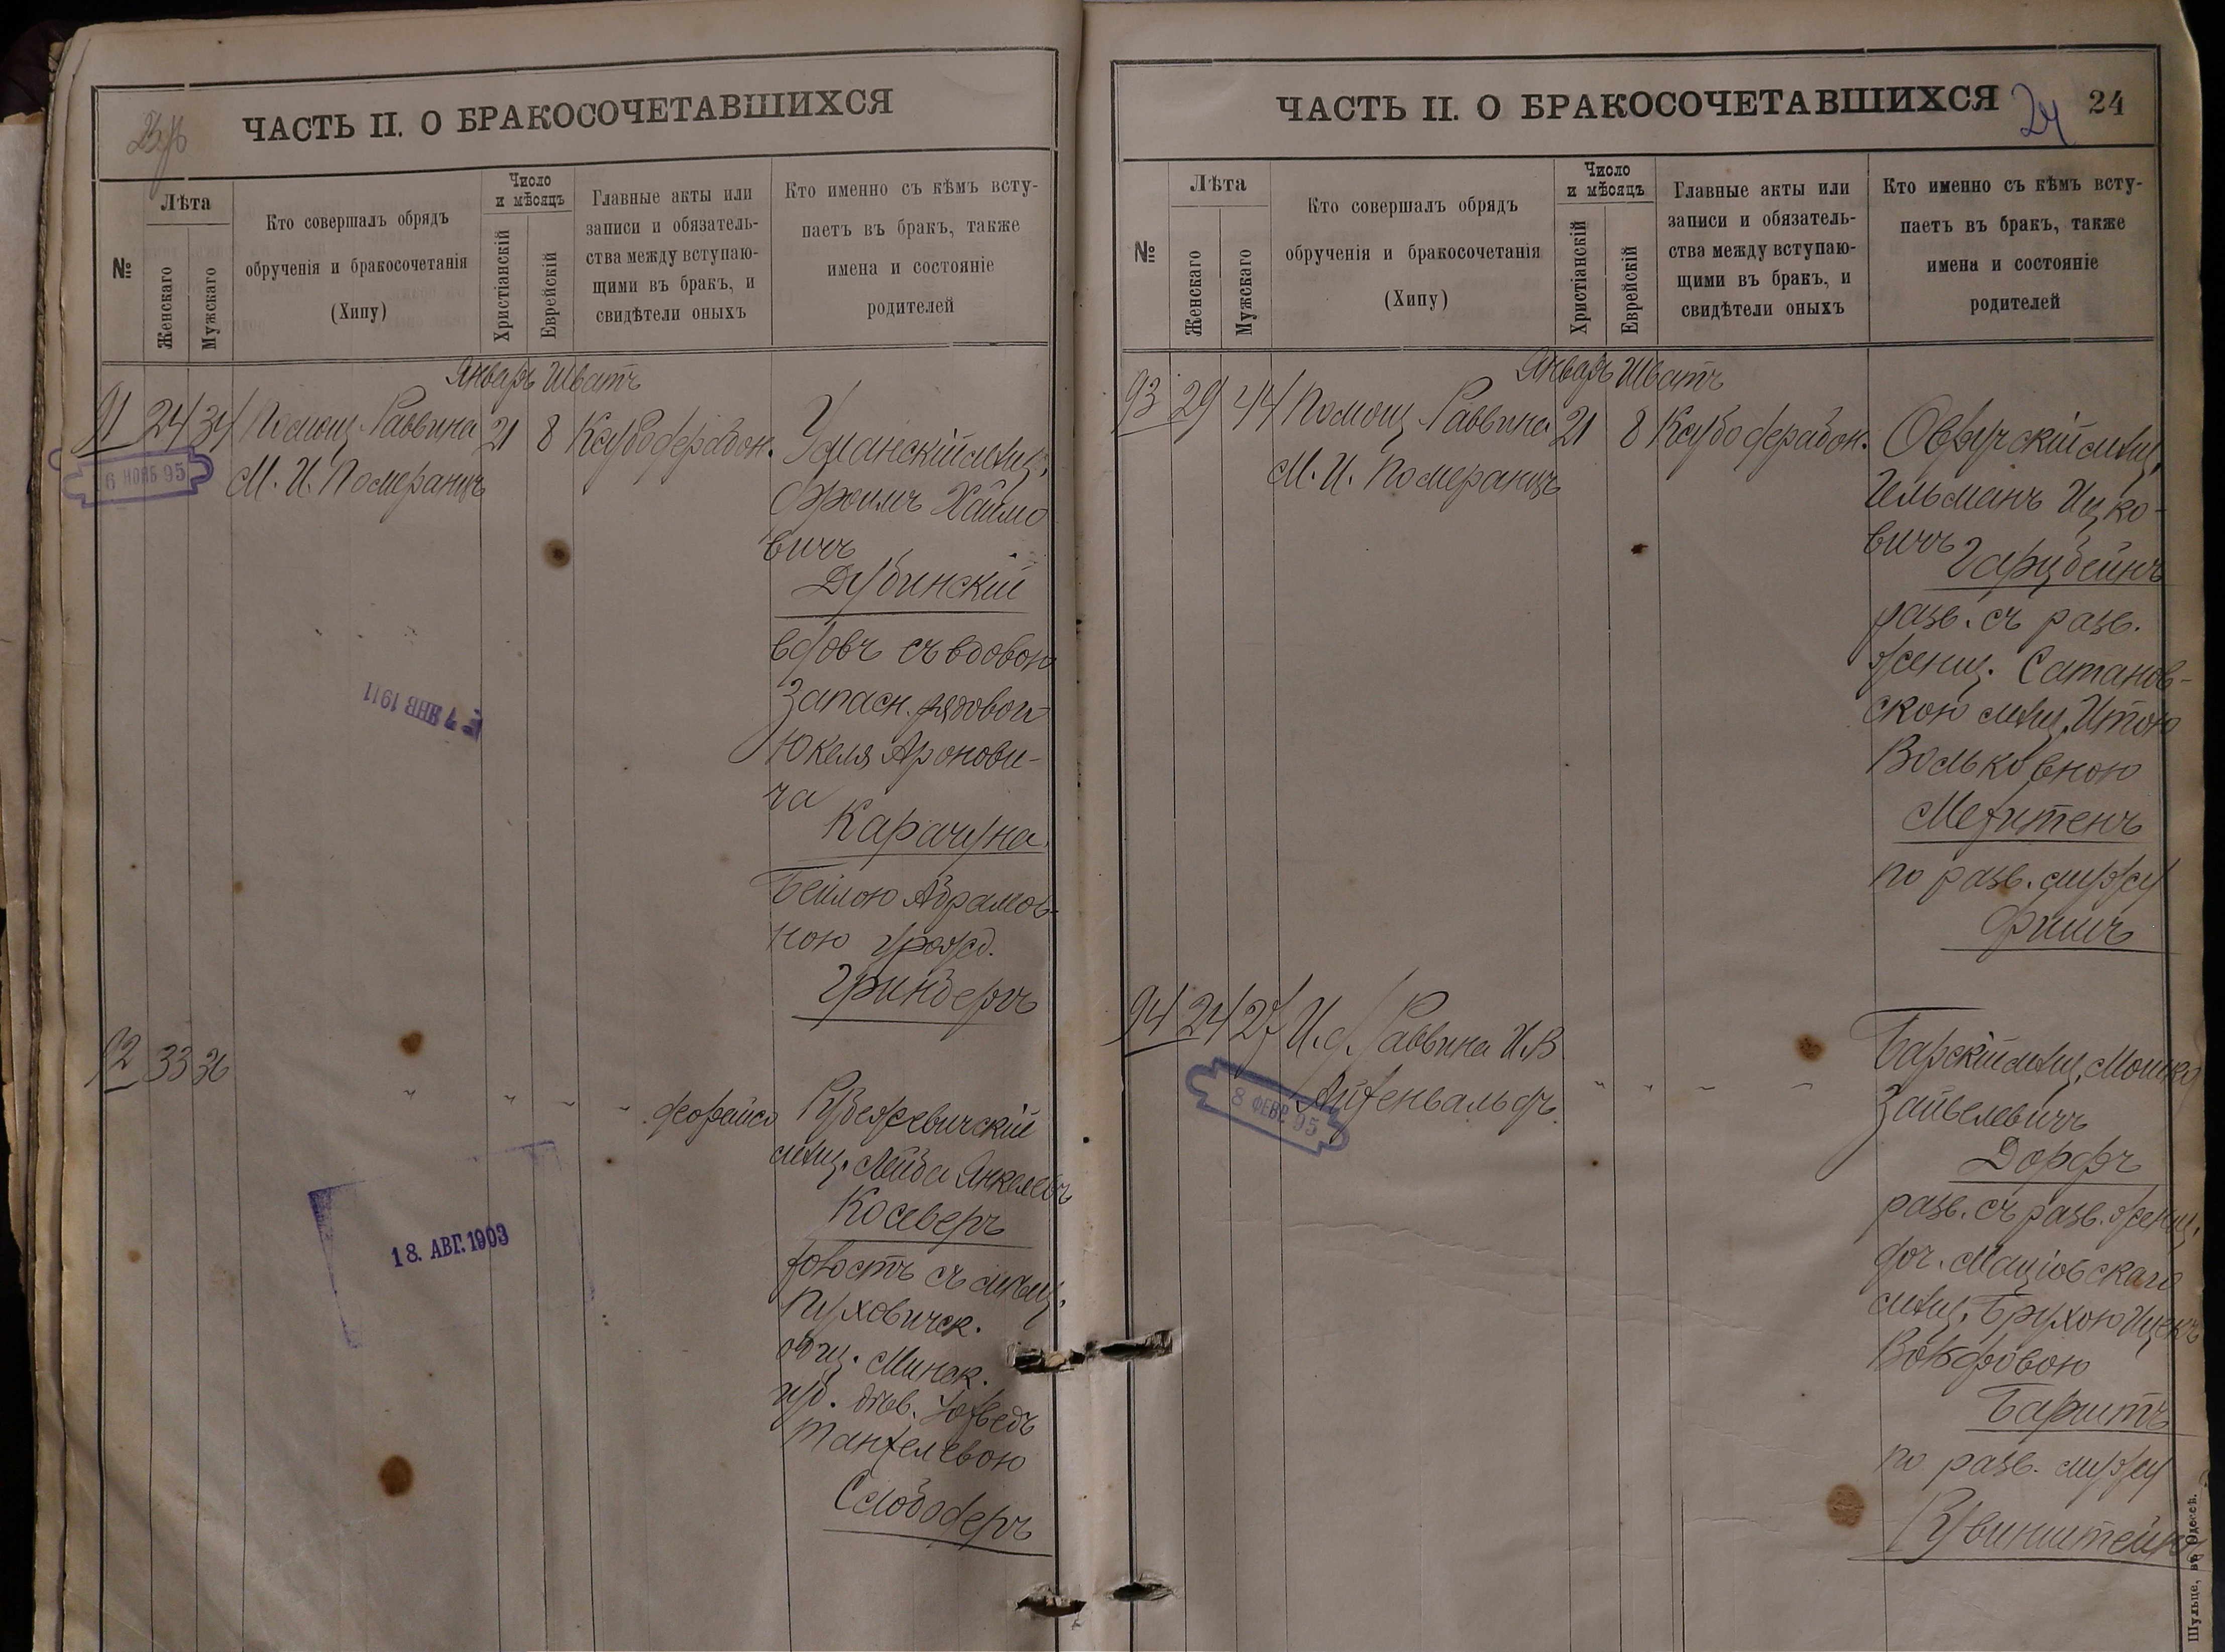 ЧАСТЬ II. О БРАКОСОЧЕТАВШИХСЯ
№
Лѣта
Женскаго
Мужскаго
Кто совершалъ обрядъ
обрученія и бракосочетанія
(Хипу)
Число
и мѣсяцъ
Христіанскій
Еврейскій
Главные акты или
записи и обязатель-
ства между вступаю-
щими въ бракъ, и
свидѣтели оныхъ
Кто именно съ кѣмъ всту-
паетъ въ бракъ, также
имена и состояніе
родителей
Январь Шватъ
91 24 34 Помощ. Раввина 21 8
М. И. Померанцъ
6 НОЯБ 95
Уманскій мѣщ.
Фроимъ Хаимо
вичъ
Дубинскій
вдовъ съ вдовою
Запасн. рядовой
Юкеля Аронови-
ча
Карачуна
Бейлою Абрамов-
ною урожд.
Гринбергъ
7 ЯНВ 1911
92 33 36
" " " "
мѣщ. Лейба Янкелевъ
Косеверъ
холостъ съ мѣщ.
Пуховичск.
общ. Минск.
губ. дѣв.
Слободеръ
18. АВГ. 1903
ЧАСТЬ II. О БРАКОСОЧЕТАВШИХСЯ
24 24
№
Лѣта
Женскаго
Мужскаго
Кто совершалъ обрядъ
обрученія и бракосочетанія
(Хипу)
Число
и мѣсяцъ
Христіанскій
Еврейскій
Главные акты или
записи и обязатель-
ства между вступаю-
щими въ бракъ, и
свидѣтели оныхъ
Кто именно съ кѣмъ всту-
паетъ въ бракъ, также
имена и состояніе
родителей
Январь Шватъ
93 29 44 Помощ. Раввина 21 8
М. И. Померанцъ
Овручскій мѣщ.
Гельманъ Ицко-
вичъ
разв. съ разв.
женщ. Сатанов-
скою мѣщ. Итою
Вольковною
по разв. мужу
Фишъ
94 24 27 И. д. Раввина И. В
Айхенвальдъ
8 ФЕВР. 95
" " " "
Барскій мѣщ. Мошко
Зайвелевичъ
Дорфъ
разв. съ разв. женщ.
доч. Маціовскаго
мѣщ. Брухою Ицекъ
Вольфовою
по разв. мужу
Рувинштейнъ
Шульце, въ Одессѣ.